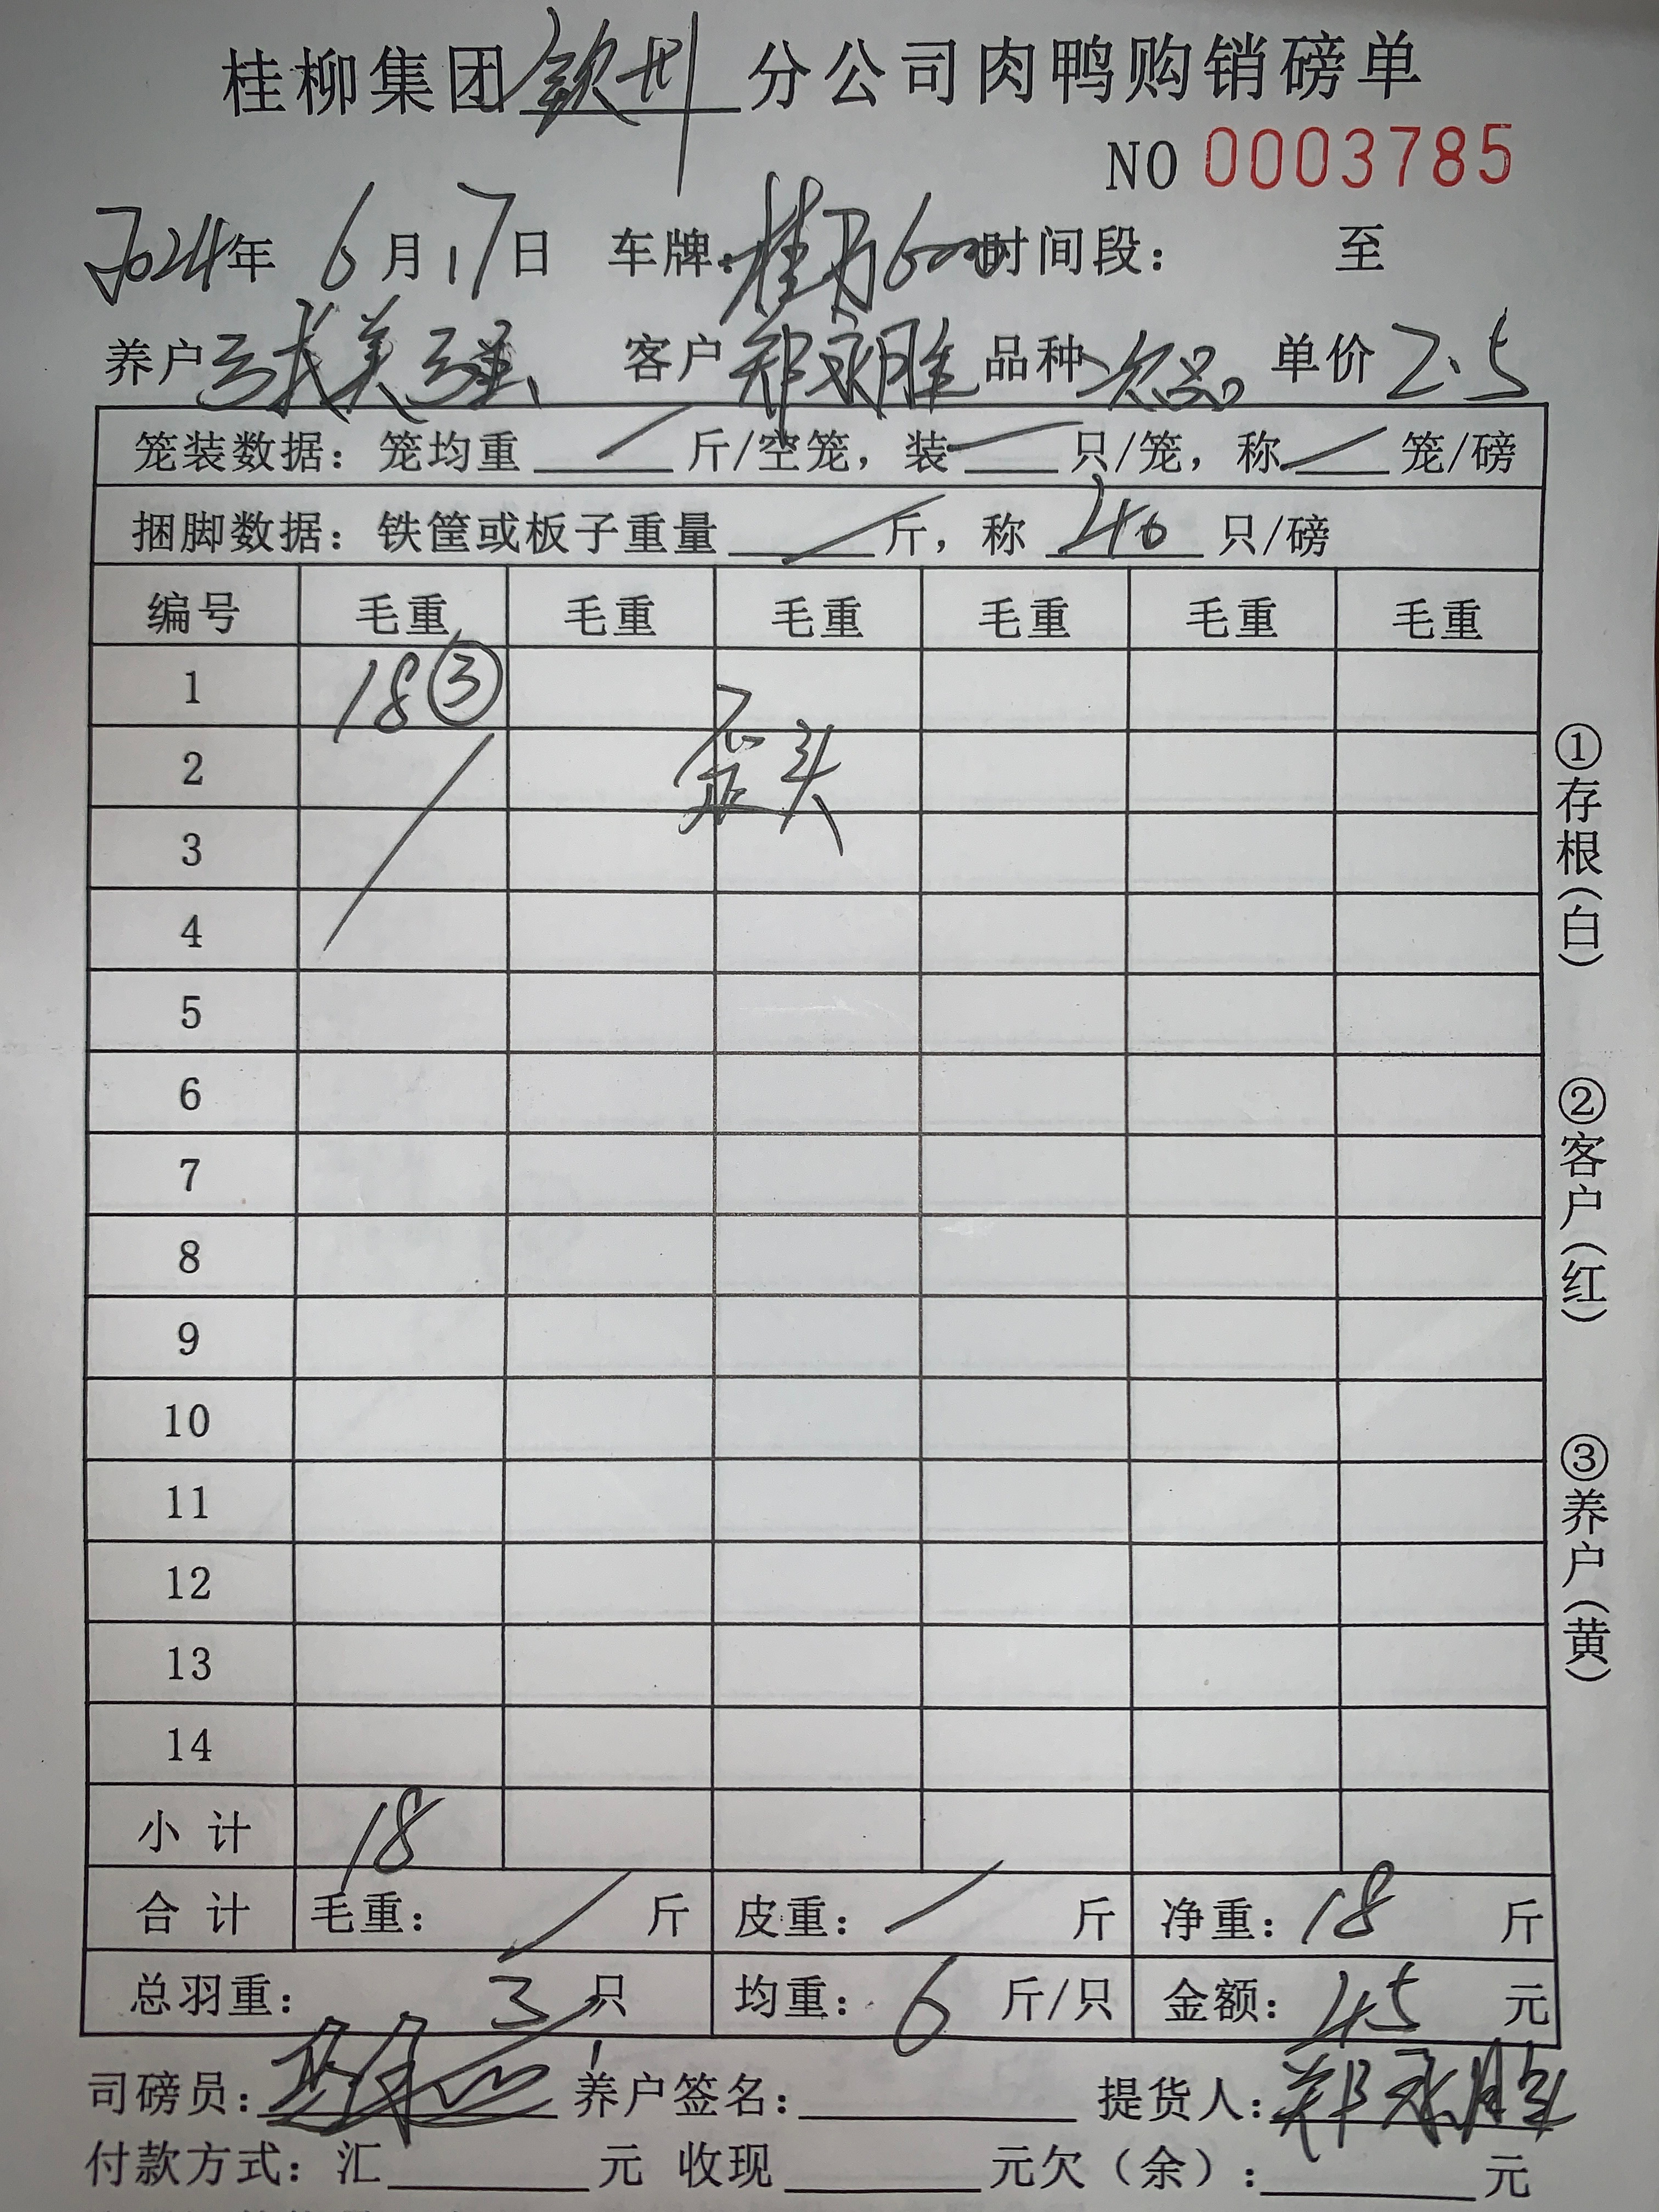 桂柳集团钦州分公司肉鸭购销磅单
NO 0003785
2024年 6月17日 车牌:桂 600 时间段: 至
养户 张美强 客户 郑永胜 品种 次品 单价 2.5
笼装数据: 笼均重 / 斤/空笼, 装 / 只/笼, 称 / 笼/磅
捆脚数据: 铁筐或板子重量 / 斤, 称 40 只/磅
编号 毛重 毛重 毛重 毛重 毛重 毛重
1 18 ③
2 歪头
3
4
5
6
7
8
9
10
11
12
13
14
小计 18
合计 毛重: / 斤 皮重: / 斤 净重: 18 斤
总羽重: 3 只 均重: 6 斤/只 金额: 45 元
司磅员: 养户签名: 提货人: 郑永胜
付款方式: 汇 元 收现 元欠(余): 元
①存根(白)
②客户(红)
③养户(黄)